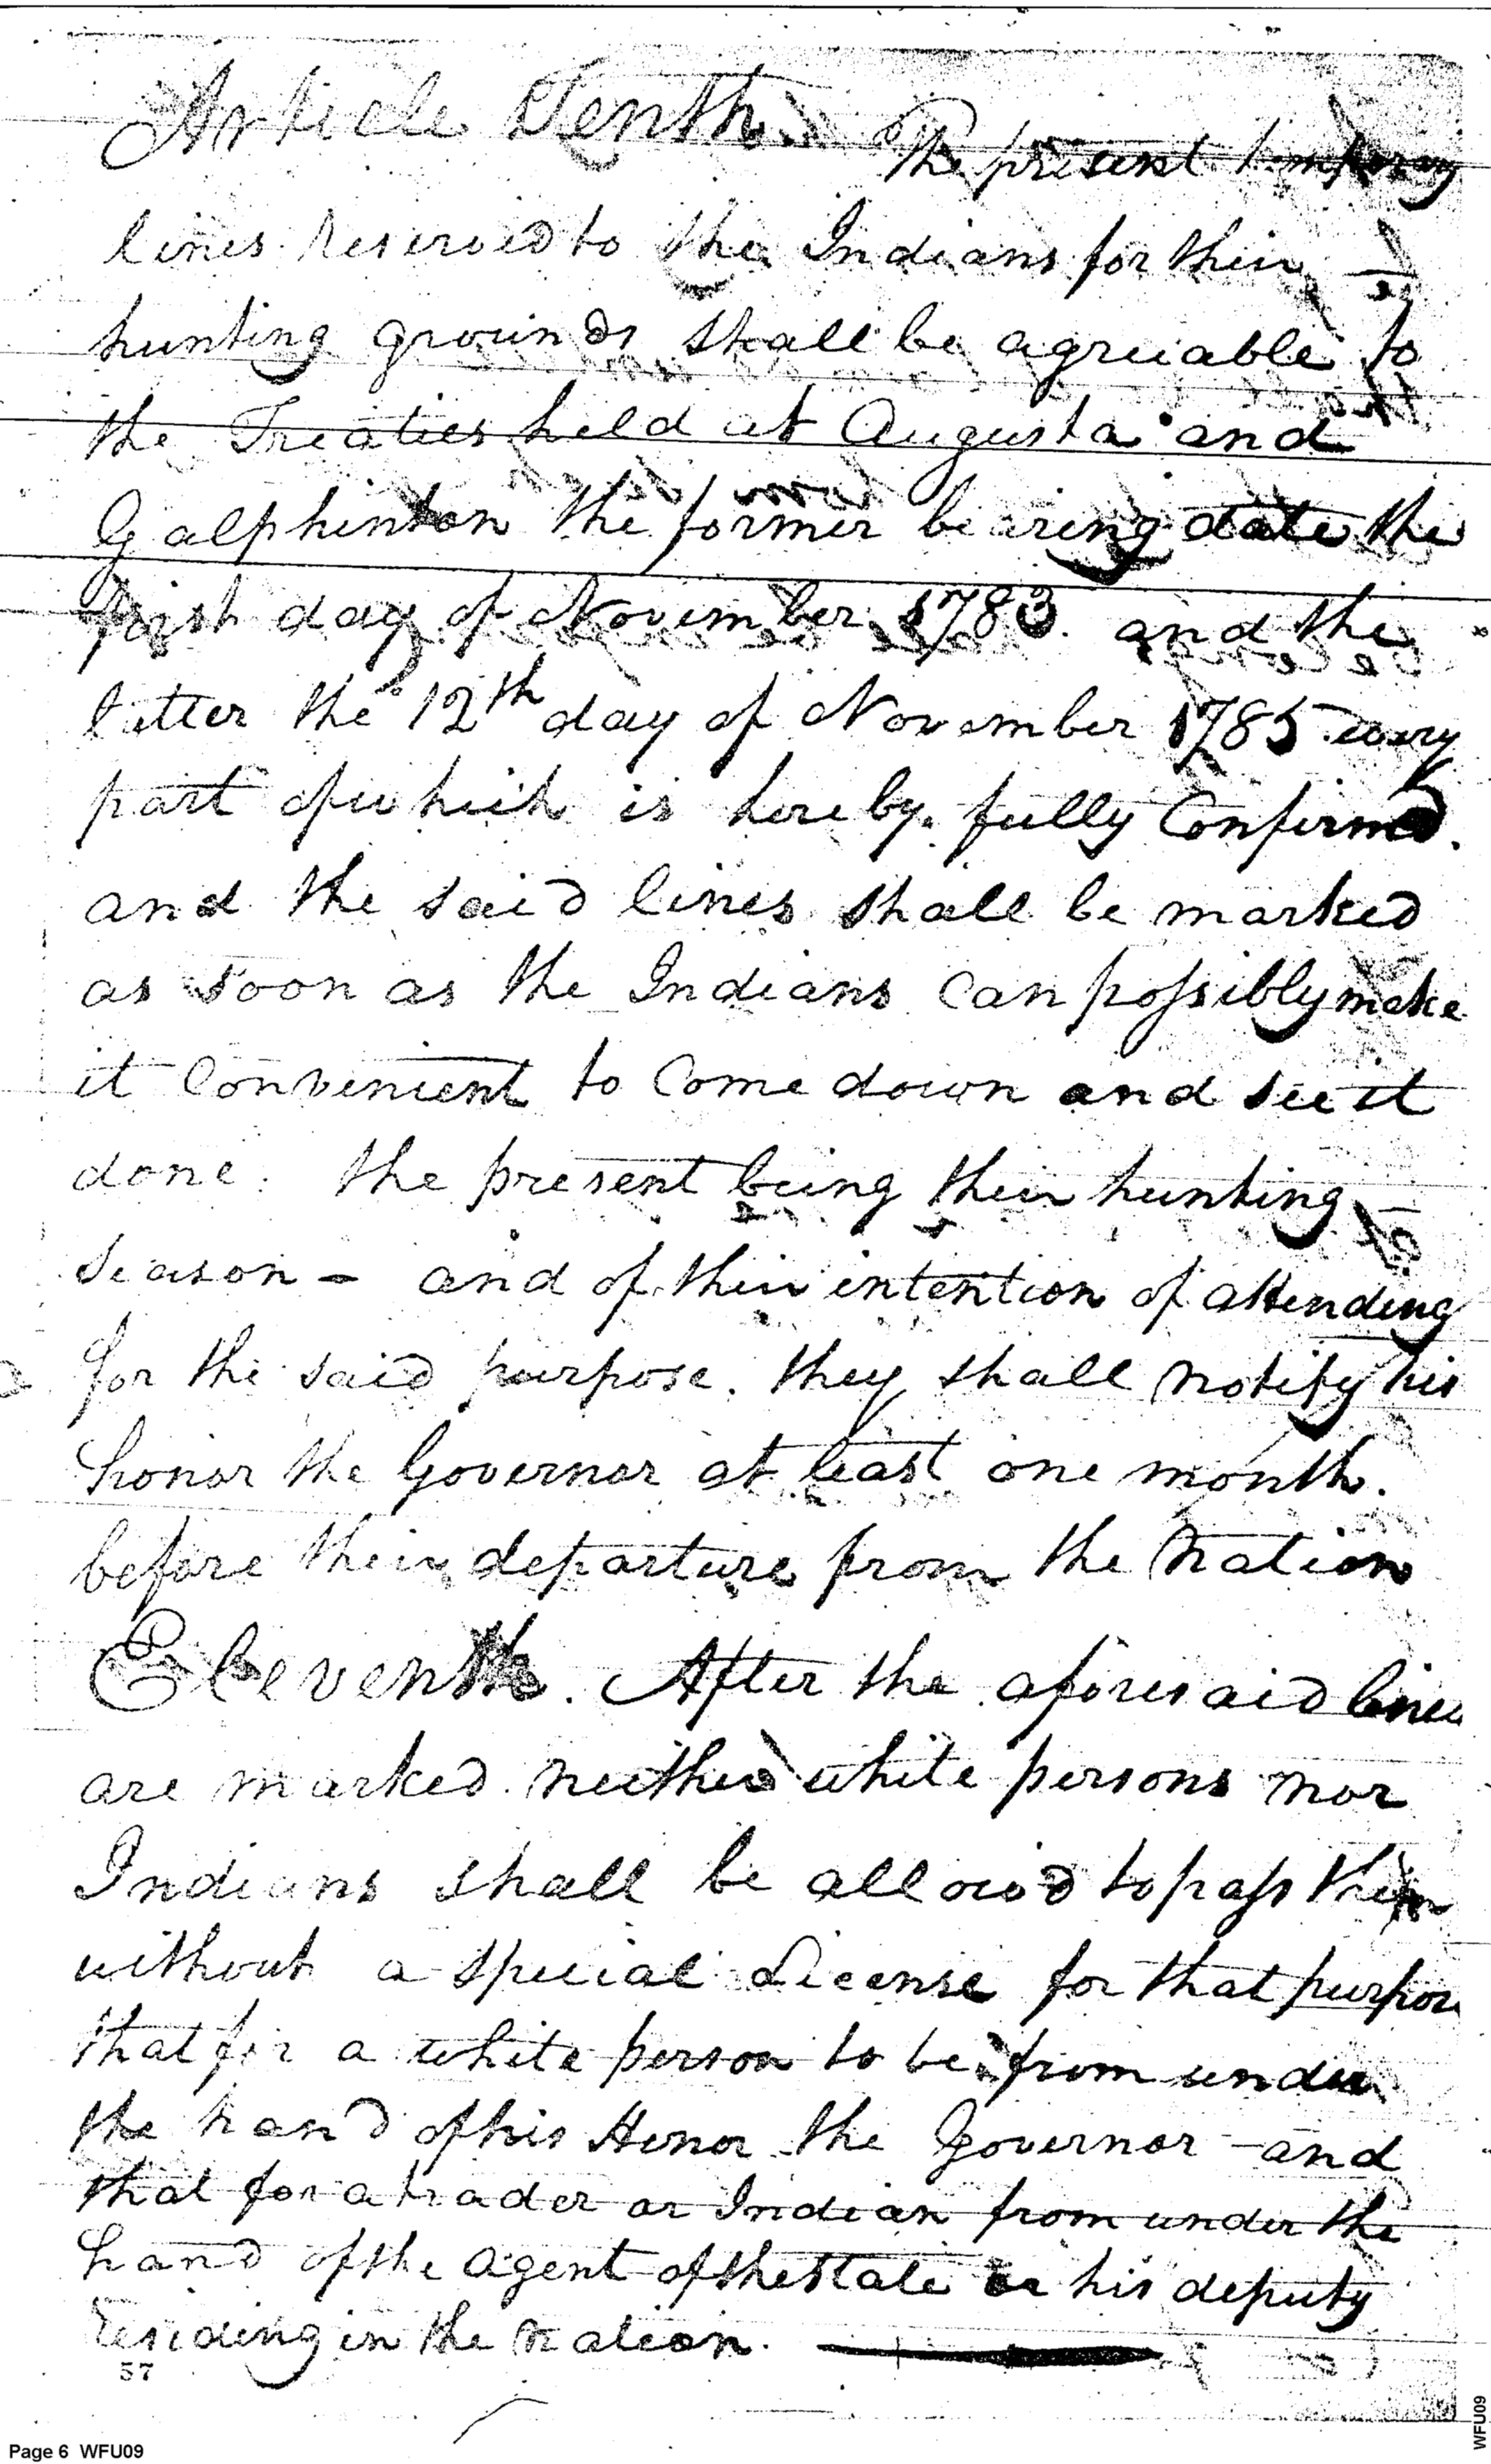 Article Tenth. The present temporary
lines reserved to the Indians for their
hunting grounds shall be agreeable to
the Treaties held at Augusta and
Galphinton the former bearing date the
first day of November 1783. and the
latter the 12th day of November 1785 every
part of which is hereby fully Confirmed.
and the said lines shall be marked
as soon as the Indians can possibly make
it Convenient to Come down and see it
done. the present being their hunting
season - and of their intention of attending
for the said purpose. they shall notify his
honor the Governor at least one month.
before their departure from the Nation
Eleventh. After the aforesaid lines
are marked neither white persons nor
Indians shall be allowed to pass them
without a special License for that purpose
that for a white person to be from under
the hand of his Honor the Governor - and
that for a trader or Indian from under the
hand of the agent of the State or his deputy
residing in the nation.
57
Page 6 WFU09
WFU09